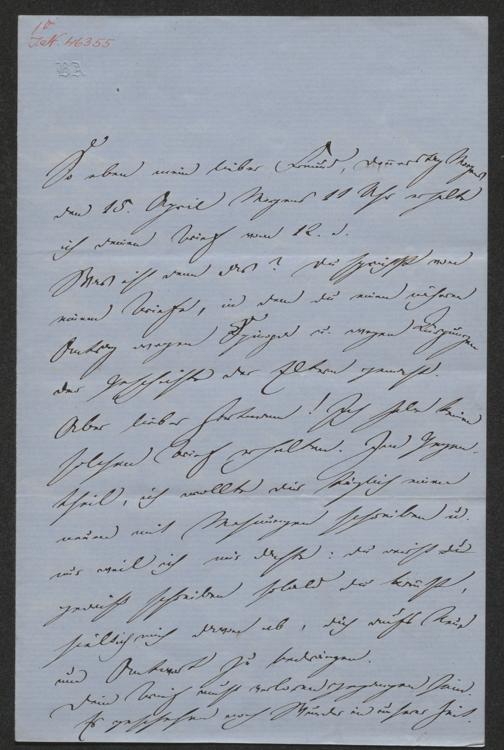 I.N. 46355
So eben mein lieber Freund, Donnerstag Morgens
den 15. April Morgens 11 Uhr erhalte
ich deinen Brief vom 12. d.
Was ist denn das? Du sprichst von
einem Briefe, in dem du einen näheren
Antrag wegen Spinoza u. wegen Kürzungen
der Geschichte der Eltern gemacht.
Aber lieber Hartmann! Ich habe keinen
solchen Brief erhalten. Im Gegen-
theil, ich wollte dir täglich einen
neuen mit Mahnungen schreiben u.
nur weil ich mir dachte: du wirst ja
gewiß schreiben sobald du kannst,
hielt ich mich davon ab, dich aufs Neue
um Antwort zu bedrängen.
Dein Brief muß verloren gegangen sein.
Es geschehen noch Wunder in unserer Zeit.